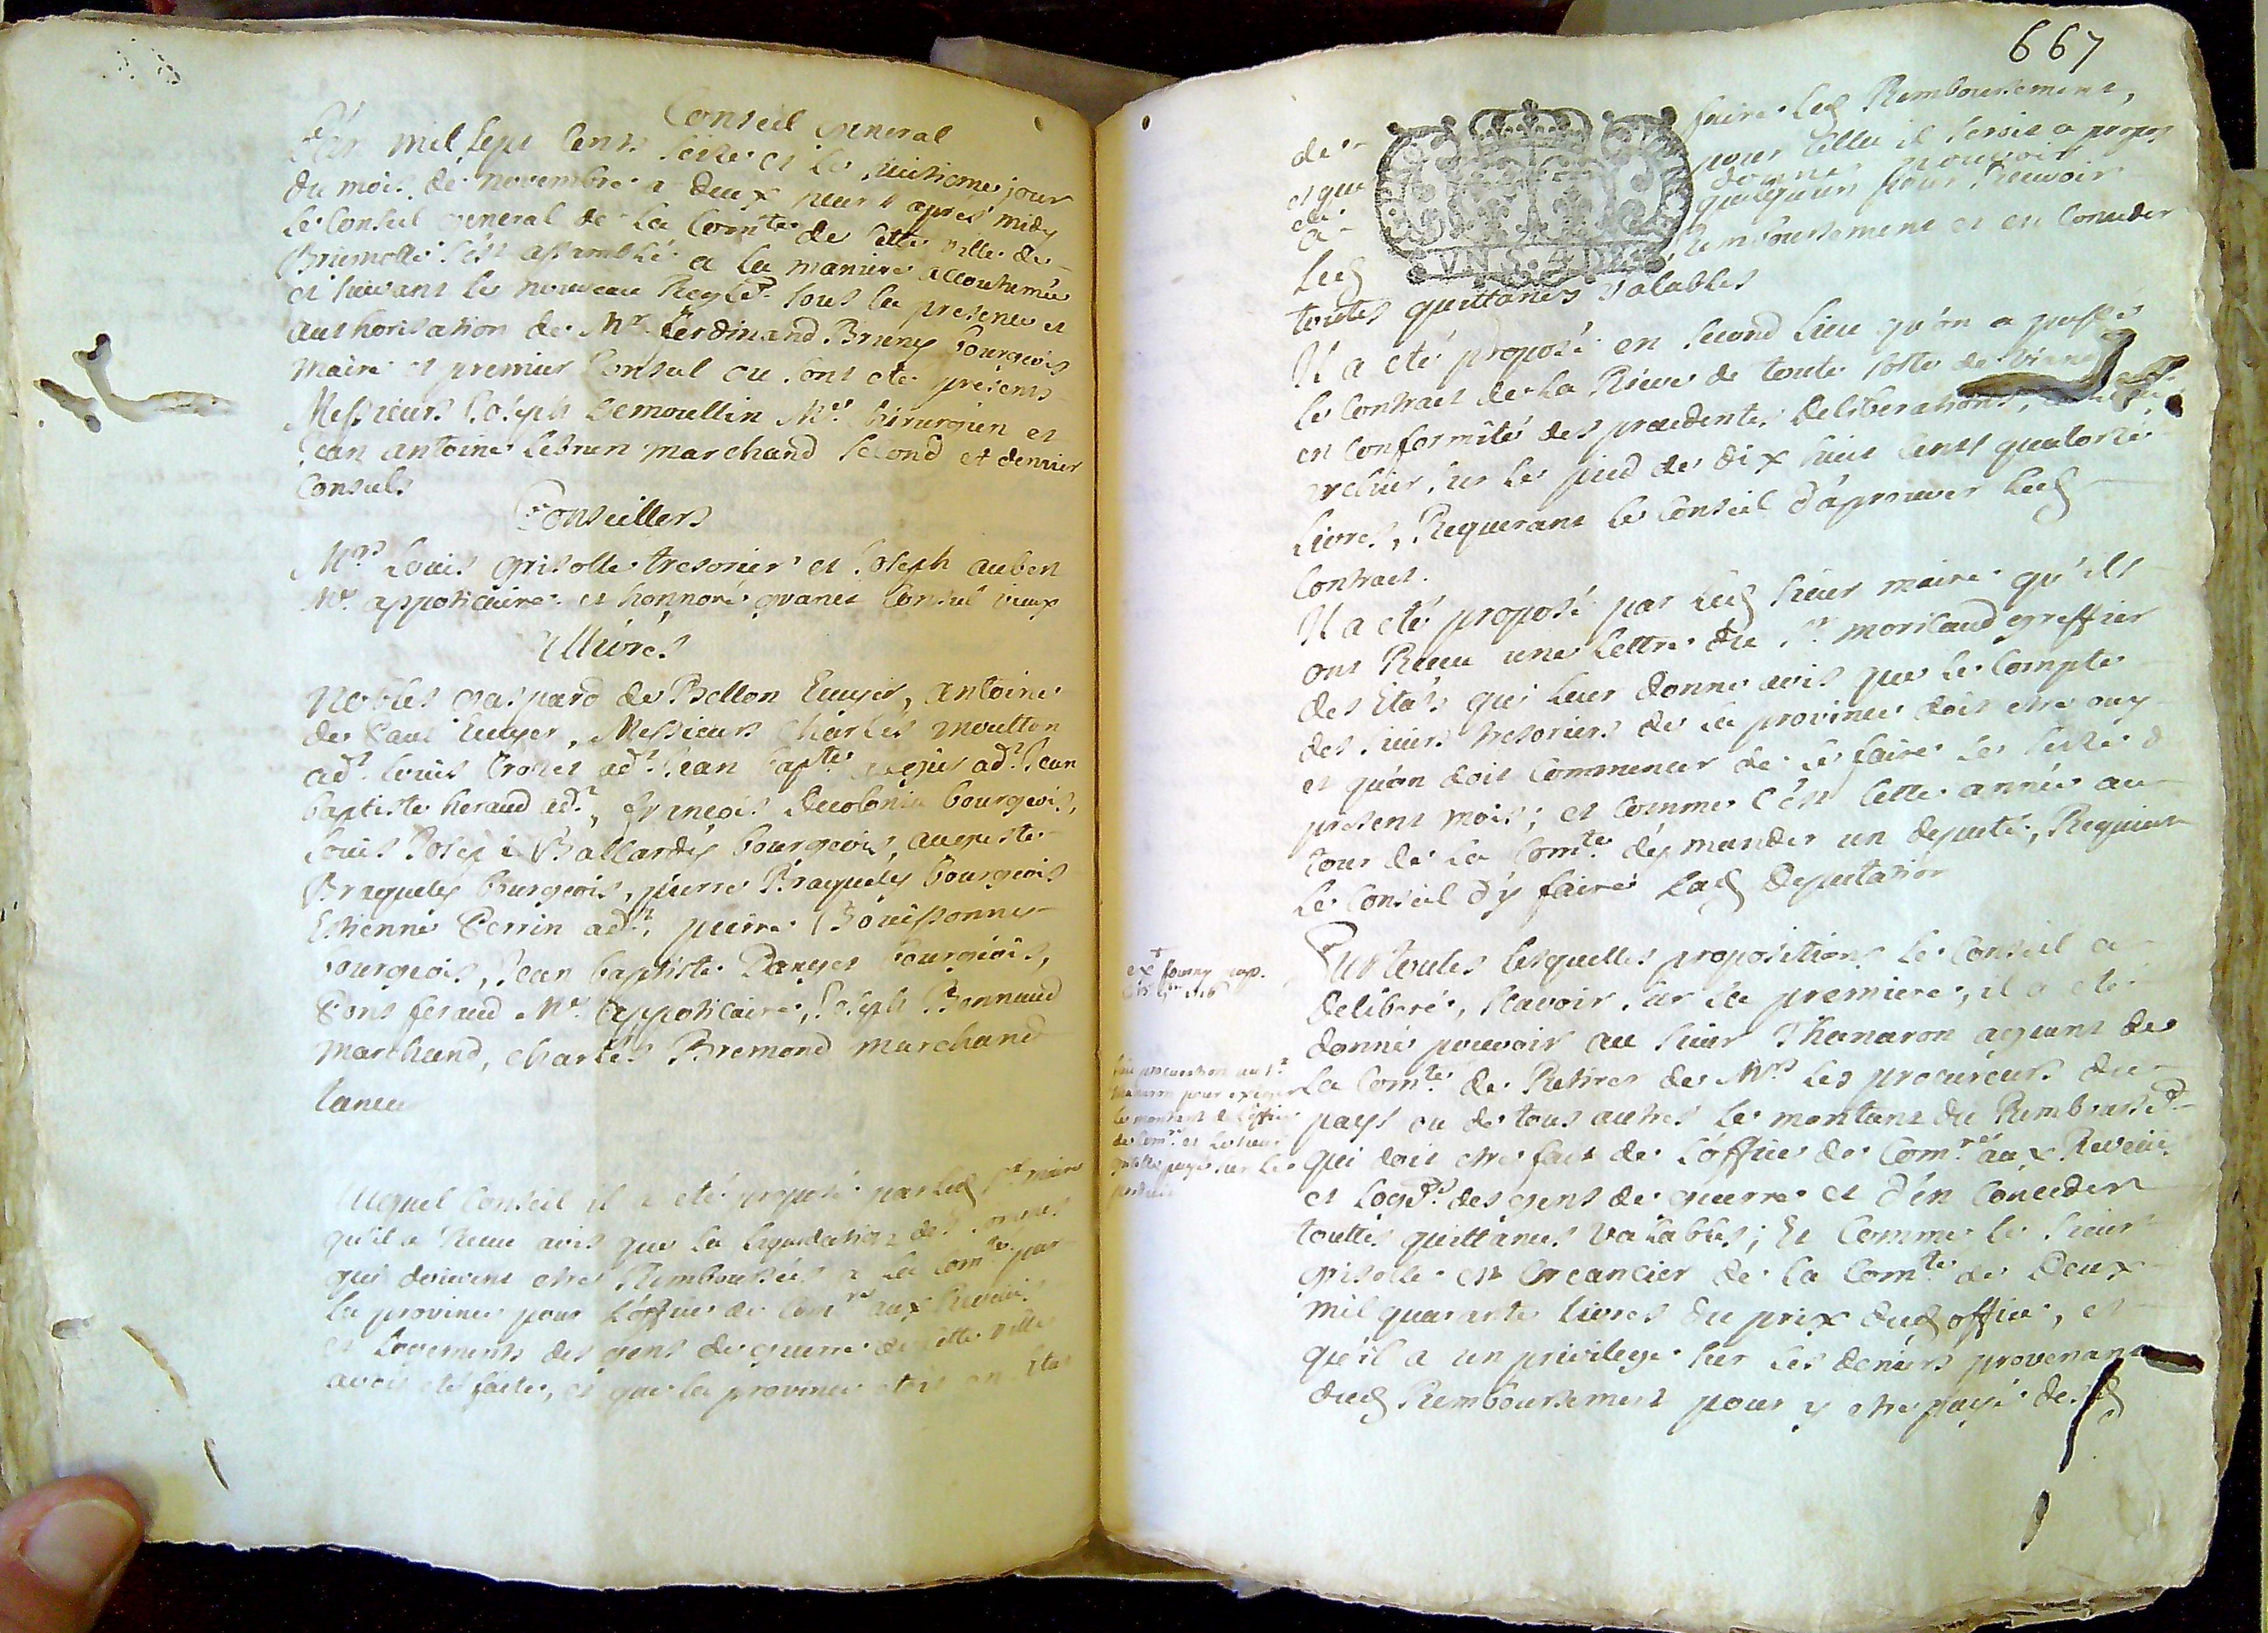 Conseil general
L'an mil sept cents seize et le huitieme jour
du mois de novembre a deux heures apres midy
le Conseil general de la Com.te de cette ville de
Brignolle s'est assemblé a la maniere accoutumée
et suivant le nouveau Regle.t sous la presence et
authorisation de M.r ferdinand Bruny bourgeois
maire et premier Consul ou sont eté présents
Messieurs Joseph Lemoullin M.e chirurgien et
Jean antoine Lebrun marchand second et dernier
Consuls
Conseillers
M.rs Louis grisolle tresorier et Joseph aubert
M.e appoticaire et honnoré granet Consul vieux
allivrés
Nobles gaspard de Bellon Ecuyer, antoine
de Paul Ecuyer, Messieurs Charles moutton
ad.t Louis ad.t Jean bap.te ad.t Jean
baptiste heraud ad.t, françois Decolonia bourgeois,
Louis Joseph Ballardy bourgeois, auguste
Braquety Bourgeois, pierre Braquety bourgeois
Estienne Perrin ad.t, pierre Bouissonne
bourgeois, Jean baptiste bourgeois,
Pons feraud M.e appoticaire, Joseph Bonnaud
marchand, charles Bremond marchand
taneur
Auquel Conseil il a eté proposé par led s.r maire
qu'il a Receu avis que la liquidation des sommes
qui doivent etre Remboursées a la Com.te par
la province pour l'office de Com.re aux Reveües
et Logements des gens de guerre de cette ville
avoit eté faite, et que la province etoit en Etat
667
de faire led Remboursement,
et que pour cella il seroit a propos
de donner pouvoir
a quelqu'un pour Recevoir
led Remboursement et en Conceder
UN S. 4 DE
toutes quittances valables
Il a eté proposé en second Lieu qu'on a passé
le Contract de la Rieve de toute sorte de
en Conformité des precedentes deliberations,
sur le pied de dix huit cents quatorze
Livres, Requerant le Conseil d'aprouver led
Contract.
Il a eté proposé par led sieur maire qu'ils
ont Receu une lettre du s.r moricaud greffier
des Etats qui leur donne avis que le Compte
des sieurs tresoriers de la province doit etre ouy
et qu'on doit Commencer de le faire le seize d
present mois; et Comme c'est cette année au
tour de la Com.te d'y mander un deputé, Requiert
le Conseil d'y faire lad deputation
Sur toutes lesquelles propositions le Conseil a
deliberé, scavoir sur la premiere, il a eté
donné pouvoir au sieur Thanaron agent de
la Com.te de Retirer de M.rs les procureurs du
pays ou de tous autres le montant du Rembourse.t
qui doit etre fait de l'office de Com.re aux Reveües
et Log.ts des gens de guerre et d'en Conceder
touttes quittances valables; Et Comme le sieur
grisolle est Creancier de la Com.te de Deux
mil quarante livres du prix dud office, et
qu'il a un privilege sur les deniers provenant
dud Remboursement pour y etre payé desd
fait procuration au s.r
thanaron pour exiger
le montant de l'office
de Com.re et le sieur
grisolle payé sur le